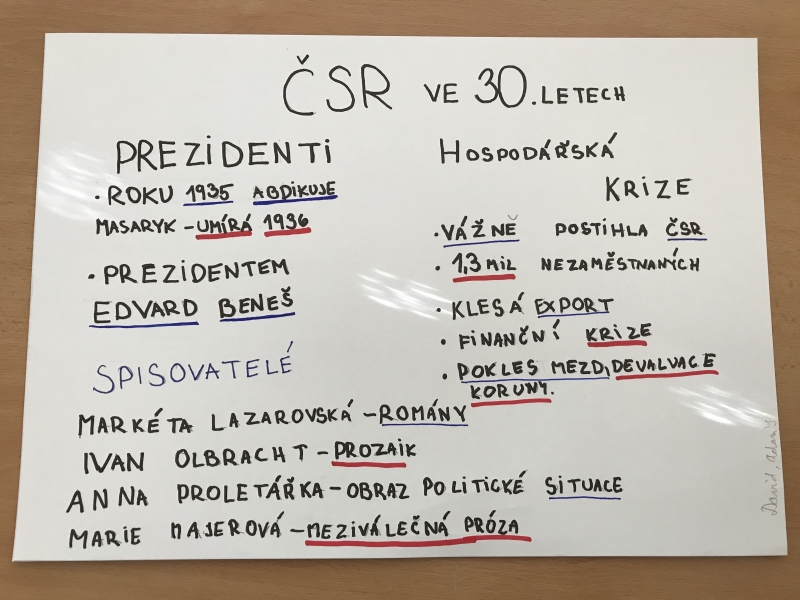 ČSR VE 30. LETECH
PREZIDENTI
• ROKU 1935 ABDIKUJE
MASARYK – UMÍRÁ 1936
• PREZIDENTEM
EDVARD BENEŠ
HOSPODÁŘSKÁ
KRIZE
• VÁŽNĚ POSTIHLA ČSR
• 1,3 MIL NEZAMĚSTNANÝCH
• KLESÁ EXPORT
• FINANČNÍ KRIZE
• POKLES MEZD, DEVALVACE
KORUNY.
SPISOVATELÉ
MARKÉTA LAZAROVSKÁ – ROMÁNY
IVAN OLBRACHT – PROZAIK
ANNA PROLETÁŘKA – OBRAZ POLITICKÉ SITUACE
MARIE MAJEROVÁ – MEZIVÁLEČNÁ PRÓZA
David,